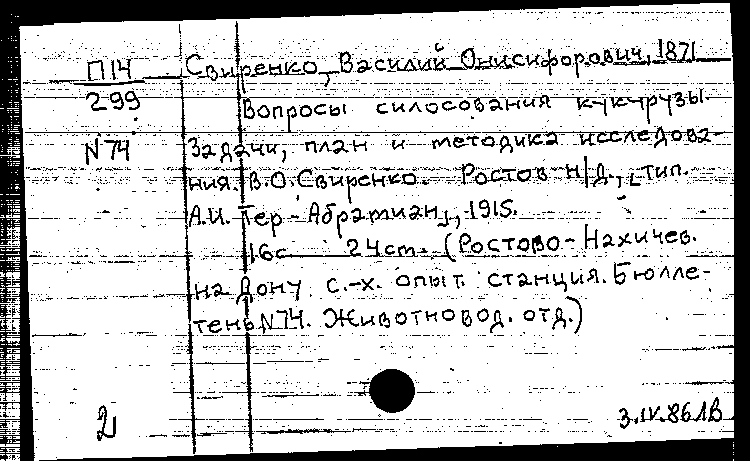 П14 Свиренко, Василий Онисифорович, 1871
299 Вопросы силосования кукурузы.
N74 Задачи, план и методика исследова-
ния. В.О. Свиренко. Ростов н/Д., [тип.
А.И. Тер-Абрамиан], 1915.
16с 24см. (Ростово-Нахичев.
на Дону с.-х. опыт. станция. Бюлле-
тень N74. Животновод. отд.)
2 3.IV.86